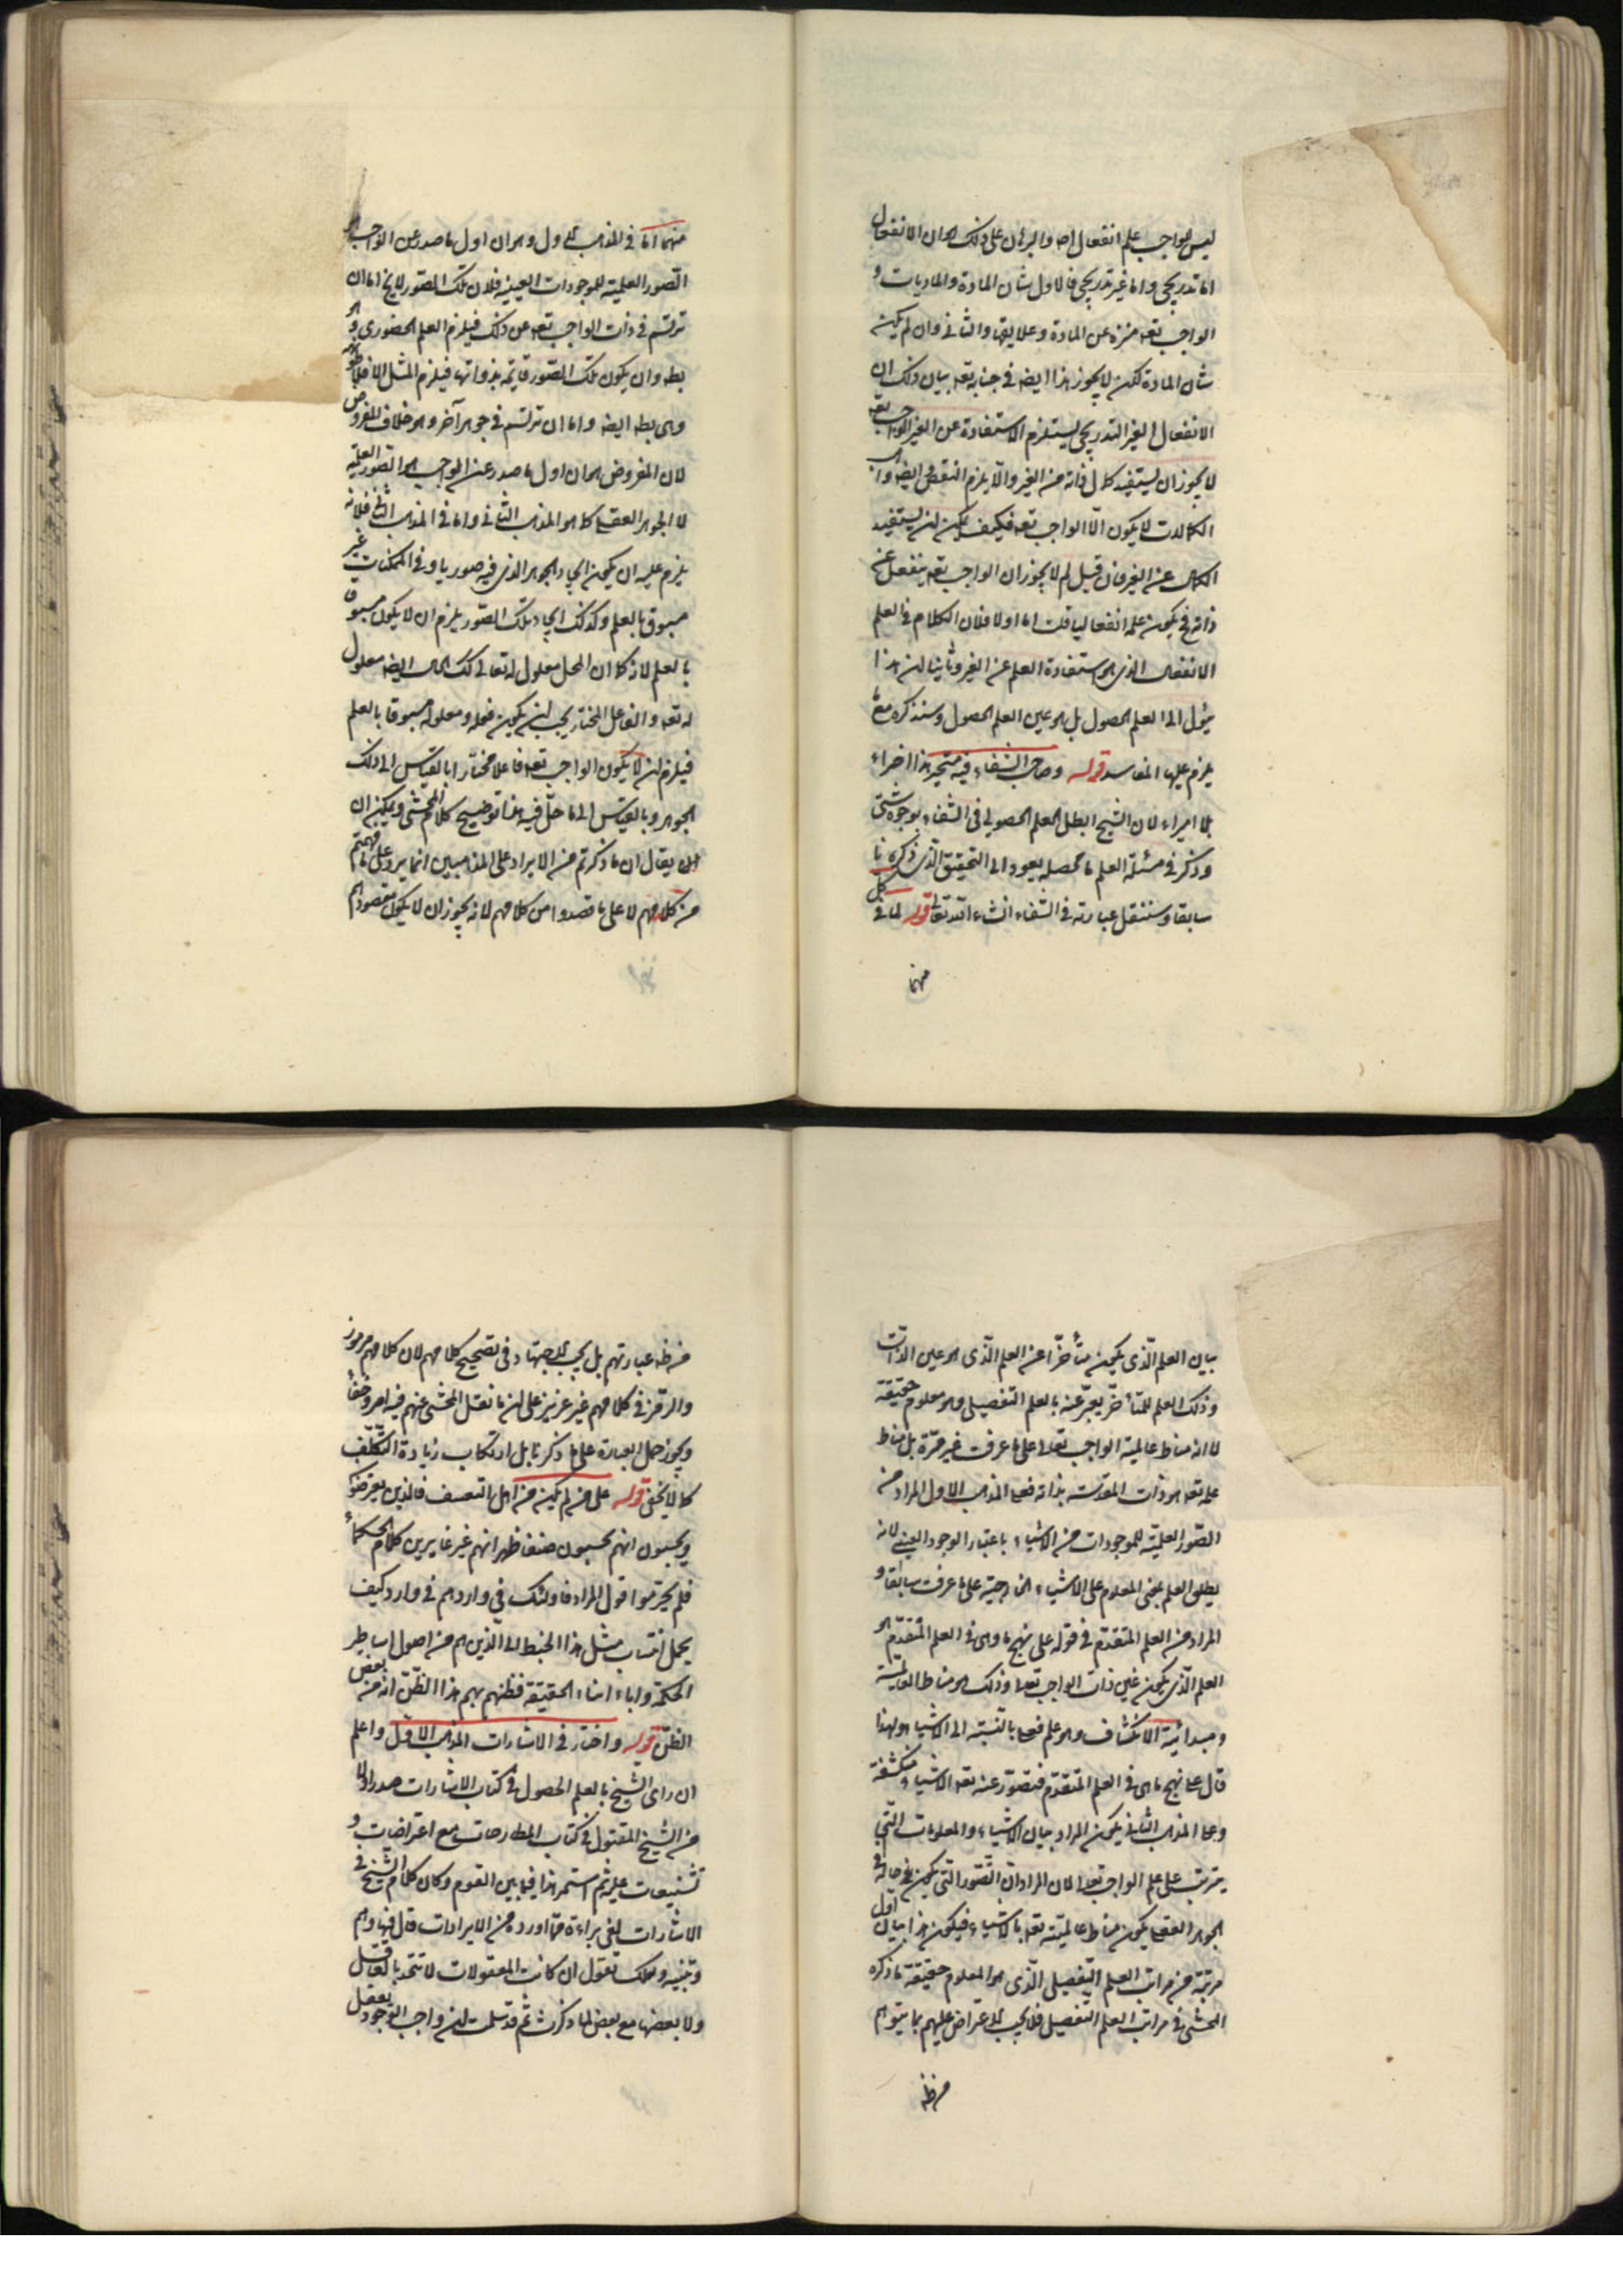 ليس للواجب علم انفعال اصه والبرهان على ذلك هو ان الانفعال
اما تدريجى واما غير تدريجى فالاول شان المادة والماديات و
الواجب تعه منزه عن المادة وعلايقها والثانى وان لم يكن
شان المادة لكن لا يجوز هذا ايضه فى جنابه تعه بيان ذلك ان
الانفعال الغير التدريجى يستلزم الاستفادة عن الغير الواجب تعه
لا يجوز ان يستفيد كمال ذاته من الغير والا يلزم النقص ايضه
الكمالات لا يكون الا الواجب تعه فكيف يمكن ان يستفيد
الكمال عن الغير فان قيل لم لا يجوز ان الواجب تعه ينفعل عن
ذاته فح يكون علمه انفعاليا قلت اما اولا فلان الكلام فى العلم
الانفعالى الذى هو استفادة العلم عن الغير وثانيا ان هذا
يؤل الى العلم الحصول بل هو عين العلم الحصول وسنذكره مع ما
يلزم عليها المفاسد قوله وصاحب الشفاء فيه متحير هذا افتراء
بلا امتراء لان الشيخ ابطل العلم الحصولى فى الشفاء بوجوه شتى
وذكر فى مسئلة العلم ما محصله يعود الى التحقيق الذى ذكرنا
سابقا وسننقل عبارته فى الشفاء انشاء الله تعالى قوله لما فى كل
منهما
منهما اما فى المذهب الاول وهو ان اول ما صدر عن الواجب هو
الصور العلمية للموجودات العينية فلان تلك الصور لا يخ اما ان
ترتسم فى ذات الواجب تعه عن ذلك فيلزم العلم الحضورى وهو
بطه وان يكون تلك الصور قايمة بذواتها فيلزم المثل الافلاطونية
وهى بطه ايضه واما ان ترتسم فى جوهر آخر وهو خلاف المفروض
لان المفروض هو ان اول ما صدر عن الواجب هو الصور العلمية
لا الجوهر العقلى كما هو المذهب الثانى واما فى المذهب الثانى فلانه
يلزم عليه ان يكون ايجاد الجوهر الذى فيه صور باقى الممكنات غير
مسبوق بالعلم وكذلك ايجاد تلك الصور يلزم ان لا يكون مسبوقا
بالعلم لانه كما ان المحل معلول له تعالى كك الحال ايضه معلول
له تعه والفاعل المختار يجب ان يكون فعله ومعلوله مسبوقا بالعلم
فيلزم ان لا يكون الواجب تعه فاعلا مختارا بالقياس الى ذلك
الجوهر وبالقياس الى ما حل فيه هذا توضيح كلام المحشى ويمكن ان
ان يقال ان ما ذكرتم من الايراد على المذهبين انما يرد على ما فهمتم
من كلامهم لا على ما قصدوا من كلامهم لانه يجوز ان لا يكون مقصودهم
بيان العلم الذى يكون متأخرا عن العلم الذى هو عين الذات
وذلك العلم المتأخر يعبر عنه بالعلم التفصيلى وهو معلوم حقيقة
لا انه مناط عالمية الواجب تعه على ما عرفت غير مرة بل مناط
علمه تعه هو ذات المقدسة بذاته فعلى المذهب الاول المراد من
الصور العلمية للموجودات من الاشياء باعتبار الوجود العينى لانه
يطلق العلم بمعنى المعلوم على الاشياء الخارجية على ما عرفت سابقا و
المراد من العلم المتقدم فى قوله على نهج ما هى فى العلم المتقدم هو
العلم الذى يكون عين ذات الواجب تعه وذلك هو مناط العالمية
ومبدائية الانكشاف وهو علم فعلى بالنسبة الى الاشياء ولهذا
قال على نهج ما هى فى العلم المتقدم فتصور عنه تعه الاشياء منكشفة
وعلى المذهب الثانى يكون المراد بيان الاشياء والمعلومات التى
يترتب على علم الواجب تعه لا ان المراد ان الصور التى يكون حاله فى
الجوهر العقلى يكون مناط عالميته تعه بالاشياء فيكون هذا بيان اول
مرتبة من مراتب العلم التفصيلى الذى هو المعلوم حقيقة ما ذكره
المحشى فى مراتب العلم التفصيلى فلا يجب الاعتراض عليهم بما يتوهم
من ظه
من ظه عبارتهم بل يجب الاجتهاد فى تصحيح كلامهم لان كلامهم مرموز
والرمز فى كلامهم غير عزيز على ان ما نقل المحشى عنهم فيه امر وخفأ
ويجوز حمل العبارة على ما ذكرنا بل ارتكاب زيادة التكلف
كما لا يخفى قوله على من لم يكن من اهل التعسف فالذين يعرضون
ويحسبون انهم يحسبون صنعا ظهر انهم غير غايرين كلام الحكماء
فلم يحترموا قول المراد فاولئك فى واد وهم فى واد وكيف
يحمل انتساب مثل هذا الخبط الى الذين هم من اصول اساطير
الحكمة واباء ابناء الحقيقة فظنهم بهم هذا الظن انه من بعض
الظن قوله واختار فى الاشارات المذهب الاول واعلم
ان راى الشيخ بالعلم الحصول فى كتاب الاشارات صدر اولا
من الشيخ المقتول فى كتاب المطارحات مع اعتراضات و
تشنيعات عليه ثم استمر هذا فيما بين القوم وكان كلام الشيخ فى
الاشارات لفى براءة مما اورده من الايرادات قال فيها وهم
وتنبيه ولعلك تقول ان كانت المعقولات لا تتحد بالعاقل
ولا بعضها مع بعض لما ذكرت ثم قد سلمت ان واجب الوجود يعقل